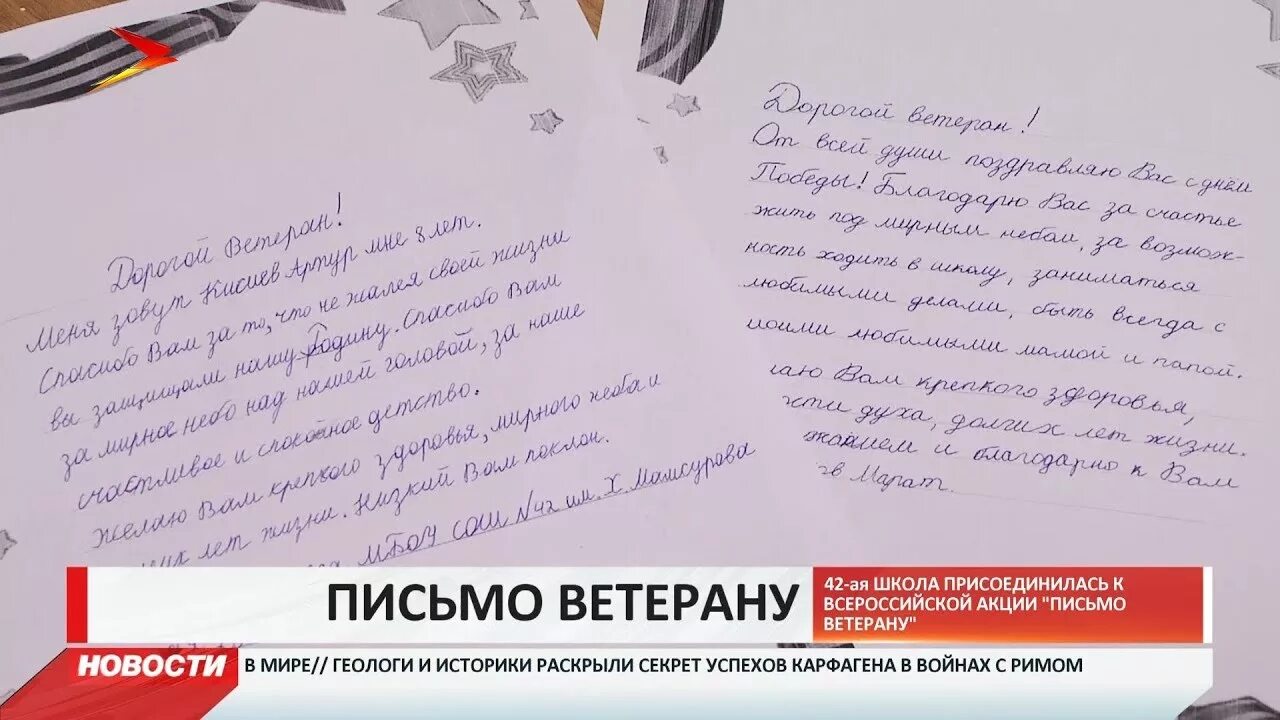 Дорогой Ветеран!
Меня зовут Кисиев Артур мне 8 лет.
Спасибо Вам за то, что не жалея своей жизни
вы защищали нашу Родину. Спасибо Вам
за мирное небо над нашей головой, за наше
счастливое и спокойное детство.
Желаю Вам крепкого здоровья, мирного неба и
лет жизни. Низкий Вам поклон.
МБОУ СОШ №42 им. Х. Мамсурова
Дорогой ветеран!
От всей души поздравляю Вас с днём
Победы! Благодарю Вас за счастье
жить под мирным небом, за возмож-
ность ходить в школу, заниматься
любимыми делами, быть всегда с
моими любимыми мамой и папой.
Вам крепкого здоровья,
духа, долгих лет жизни.
и благодарно к Вам
Марат.
ПИСЬМО ВЕТЕРАНУ
42-ая ШКОЛА ПРИСОЕДИНИЛАСЬ К
ВСЕРОССИЙСКОЙ АКЦИИ "ПИСЬМО
ВЕТЕРАНУ"
НОВОСТИ
В МИРЕ// ГЕОЛОГИ И ИСТОРИКИ РАСКРЫЛИ СЕКРЕТ УСПЕХОВ КАРФАГЕНА В ВОЙНАХ С РИМОМ